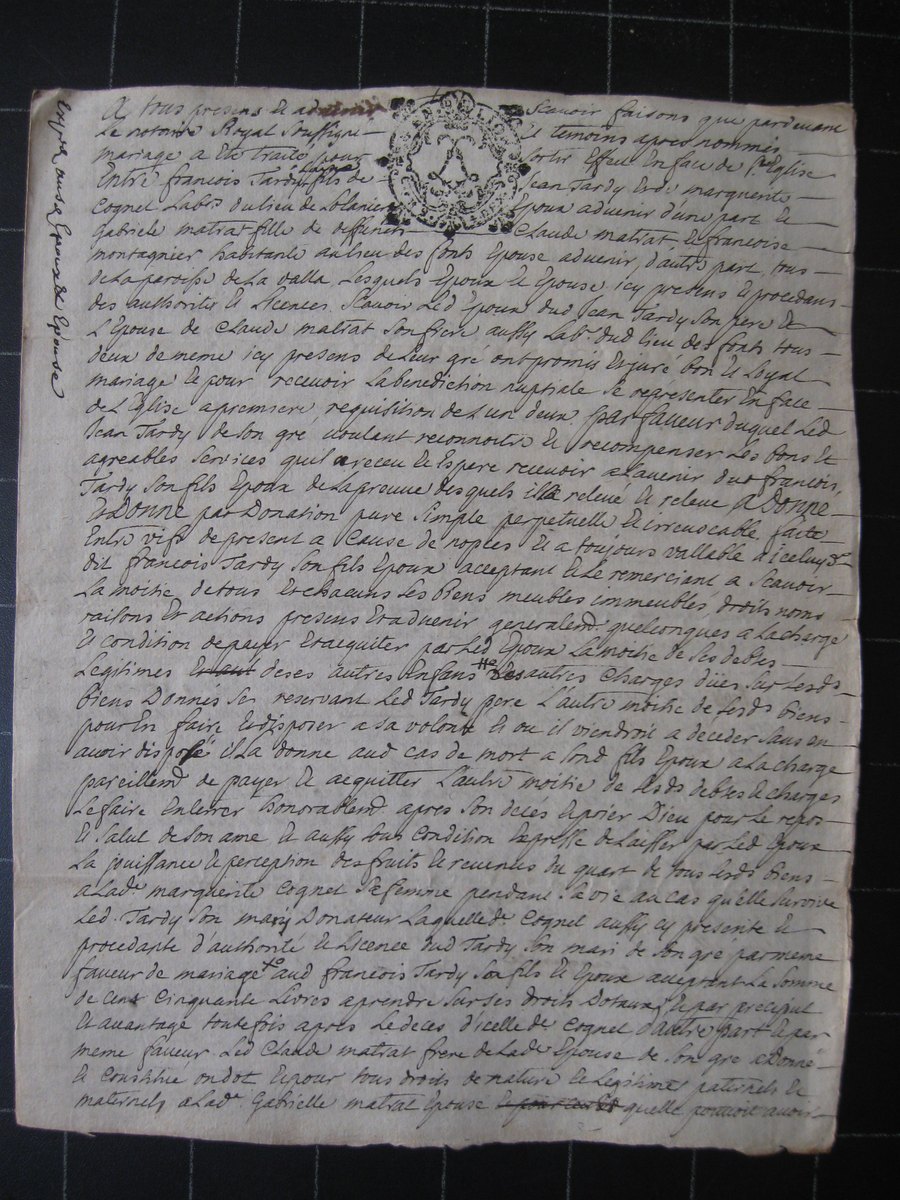 A tous presens et advenir Scavoir faisons que pardevant
Le notaire Royal Soussigné et temoins apres nommés
mariage a Eté traité pour Sortir Effect En face de Ste Eglise
Entre francois Tardy fils de Jean Tardy Et de marguerite
Cognet Labr du lieu de Epoux advenir d'une part Et
Gabriele matrat fille de deffunts Claude matrat Et francoise
montagnier habitante au lieu des fonts Epouse advenir, d'autre part, tous
de La paroisse de La valla, Lesquels Epoux Et Epouse icy presens Et procedans
des authorités Et Licences, Scavoir Led Epoux dud Jean Tardy Son pere Et
L'Epouse de Claude matrat Son frere aussy Labr dud lieu des fonts tous
deux de meme icy presens de Leur gré ont promis Et juré bon Et Loyal
mariage Et pour recevoir La benediction nuptiale Se representer En face
de L'Eglise a premiere requisition de L'un deux, par faveur duquel Led
Jean Tardy de Son gré voulant reconnoitre Et recompenser Les bons Et
agreables Services qu'il a receu Et Espere recevoir a L'avenir dud francois
Tardy Son fils Epoux de La preuve desquels il L'a relevé Et releve a Donné
Et Donne par Donation pure Simple perpetuelle Et irrevocable, faite
Entre vifs de present a Cause de nopces Et a toujours vallable a iceluy
dit francois Tardy Son fils Epoux acceptant Et Le remerciant a Scavoir
La moitié de tous Et chacuns Les biens meubles immeubles, droits noms
raisons Et actions presens Et advenir generalemt quelconques a La charge
Et condition de payer Et acquiter par Led Epoux La moitié de Ses debtes
Legitimes de ses autres Enfans autres Charges dües Sur Lesds
biens Donnés Se reservant Led Tardy pere L'autre moitié de Lesds biens
pour En faire Et disposer a sa volonté Et ou il viendroit a deceder Sans en
avoir disposé il La donne aud cas de mort a Sond fils Epoux a La charge
pareillemt de payer Et acquitter L'autre moitié de Lesds debtes Et charges
Le faire Enterrer honorablemt apres Son decés Et prier Dieu pour Le repos
Et Salut de Son ame Et aussy Sous Condition Expresse de Laisser par Led Epoux
La jouissance Et perception des fruits Et revenus du quart de tous Lesds biens
a Lade marguerite Cognet Sa femme pendant Sa vie au cas qu'elle Survive
Led. Tardy Son mary Donateur Laquelle de Cognet aussy cy presente Et
procedante d'authorité Et Licence dud Tardy Son mari de Son gré par meme
faveur de mariage aud francois Tardy Son fils Et Epoux acceptant La Somme
de Cent Cinquante Livres a prendre Sur Ses droits Dotaux, Et par preciput
Et avantage toutefois apres Le deces d'icelle de Cognet d'autre part Et par
meme faveur Led Claude matrat frere de Lade Epouse de Son gré a Donné
Et Constitué en dot Et pour tous droits de nature Et Legitime paternels Et
maternels a Lade Gabrielle matrat Epouse quelle pouvoit avoir